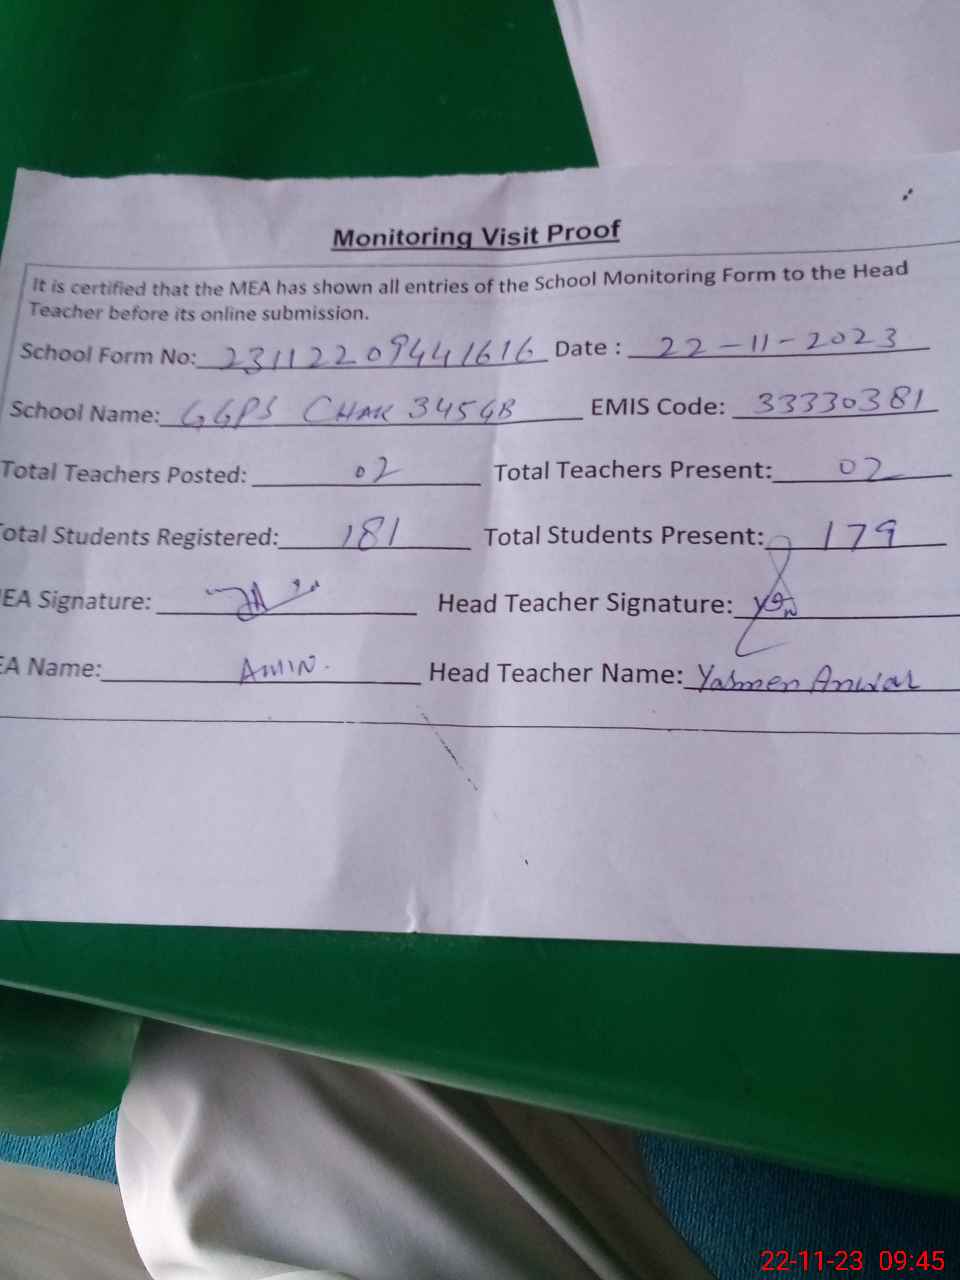 Monitoring Visit Proof
It is certified that the MEA has shown all entries of the School Monitoring Form to the Head
Teacher before its online submission.
School Form No: 23112209441616 Date : 22-11-2023
School Name: GGPS CHAK 345GB EMIS Code: 33330381
Total Teachers Posted: 02 Total Teachers Present: 02
otal Students Registered: 181 Total Students Present: 179
EA Signature: Head Teacher Signature:
EA Name: AMIN. Head Teacher Name: Yasmen Anwar
22-11-23 09:45